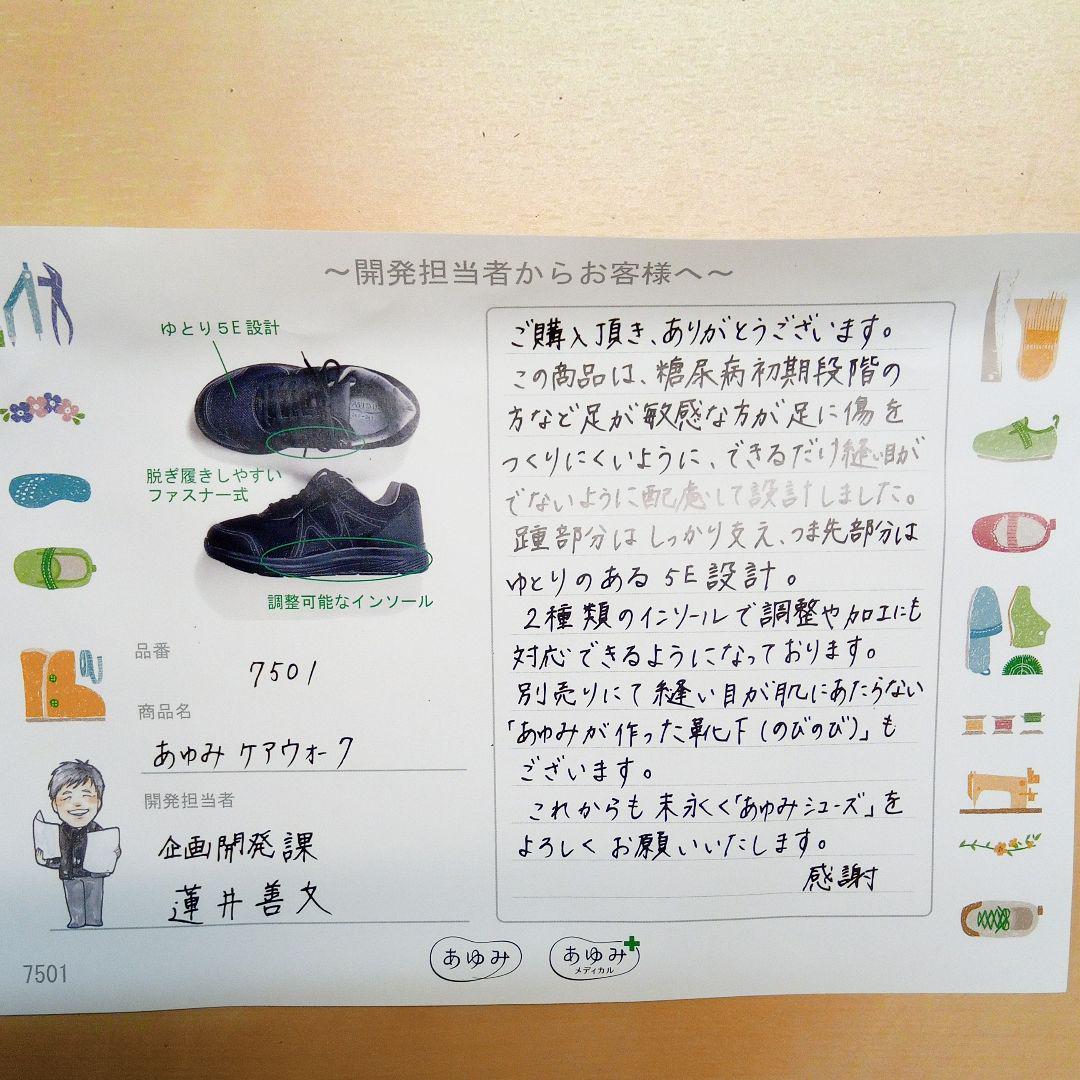 ～開発担当者からお客様へ～
ゆとり5E設計
脱ぎ履きしやすい
ファスナー式
調整可能なインソール
品番
7501
商品名
あゆみ ケアウォーク
開発担当者
企画開発課
蓮井善文
ご購入頂き、ありがとうございます。
この商品は、糖尿病初期段階の
方など足が敏感な方が足に傷を
つくりにくいように、できるだけ縫い目が
でないように配慮して設計しました。
踵部分はしっかり支え、つま先部分は
ゆとりのある5E設計。
2種類のインソールで調整や加工にも
対応できるようになっております。
別売りにて縫い目が肌にあたらない
「あゆみが作った靴下(のびのび)」も
ございます。
これからも末永く「あゆみシューズ」を
よろしくお願いいたします。
感謝
あゆみ
あゆみ
メディカル
7501